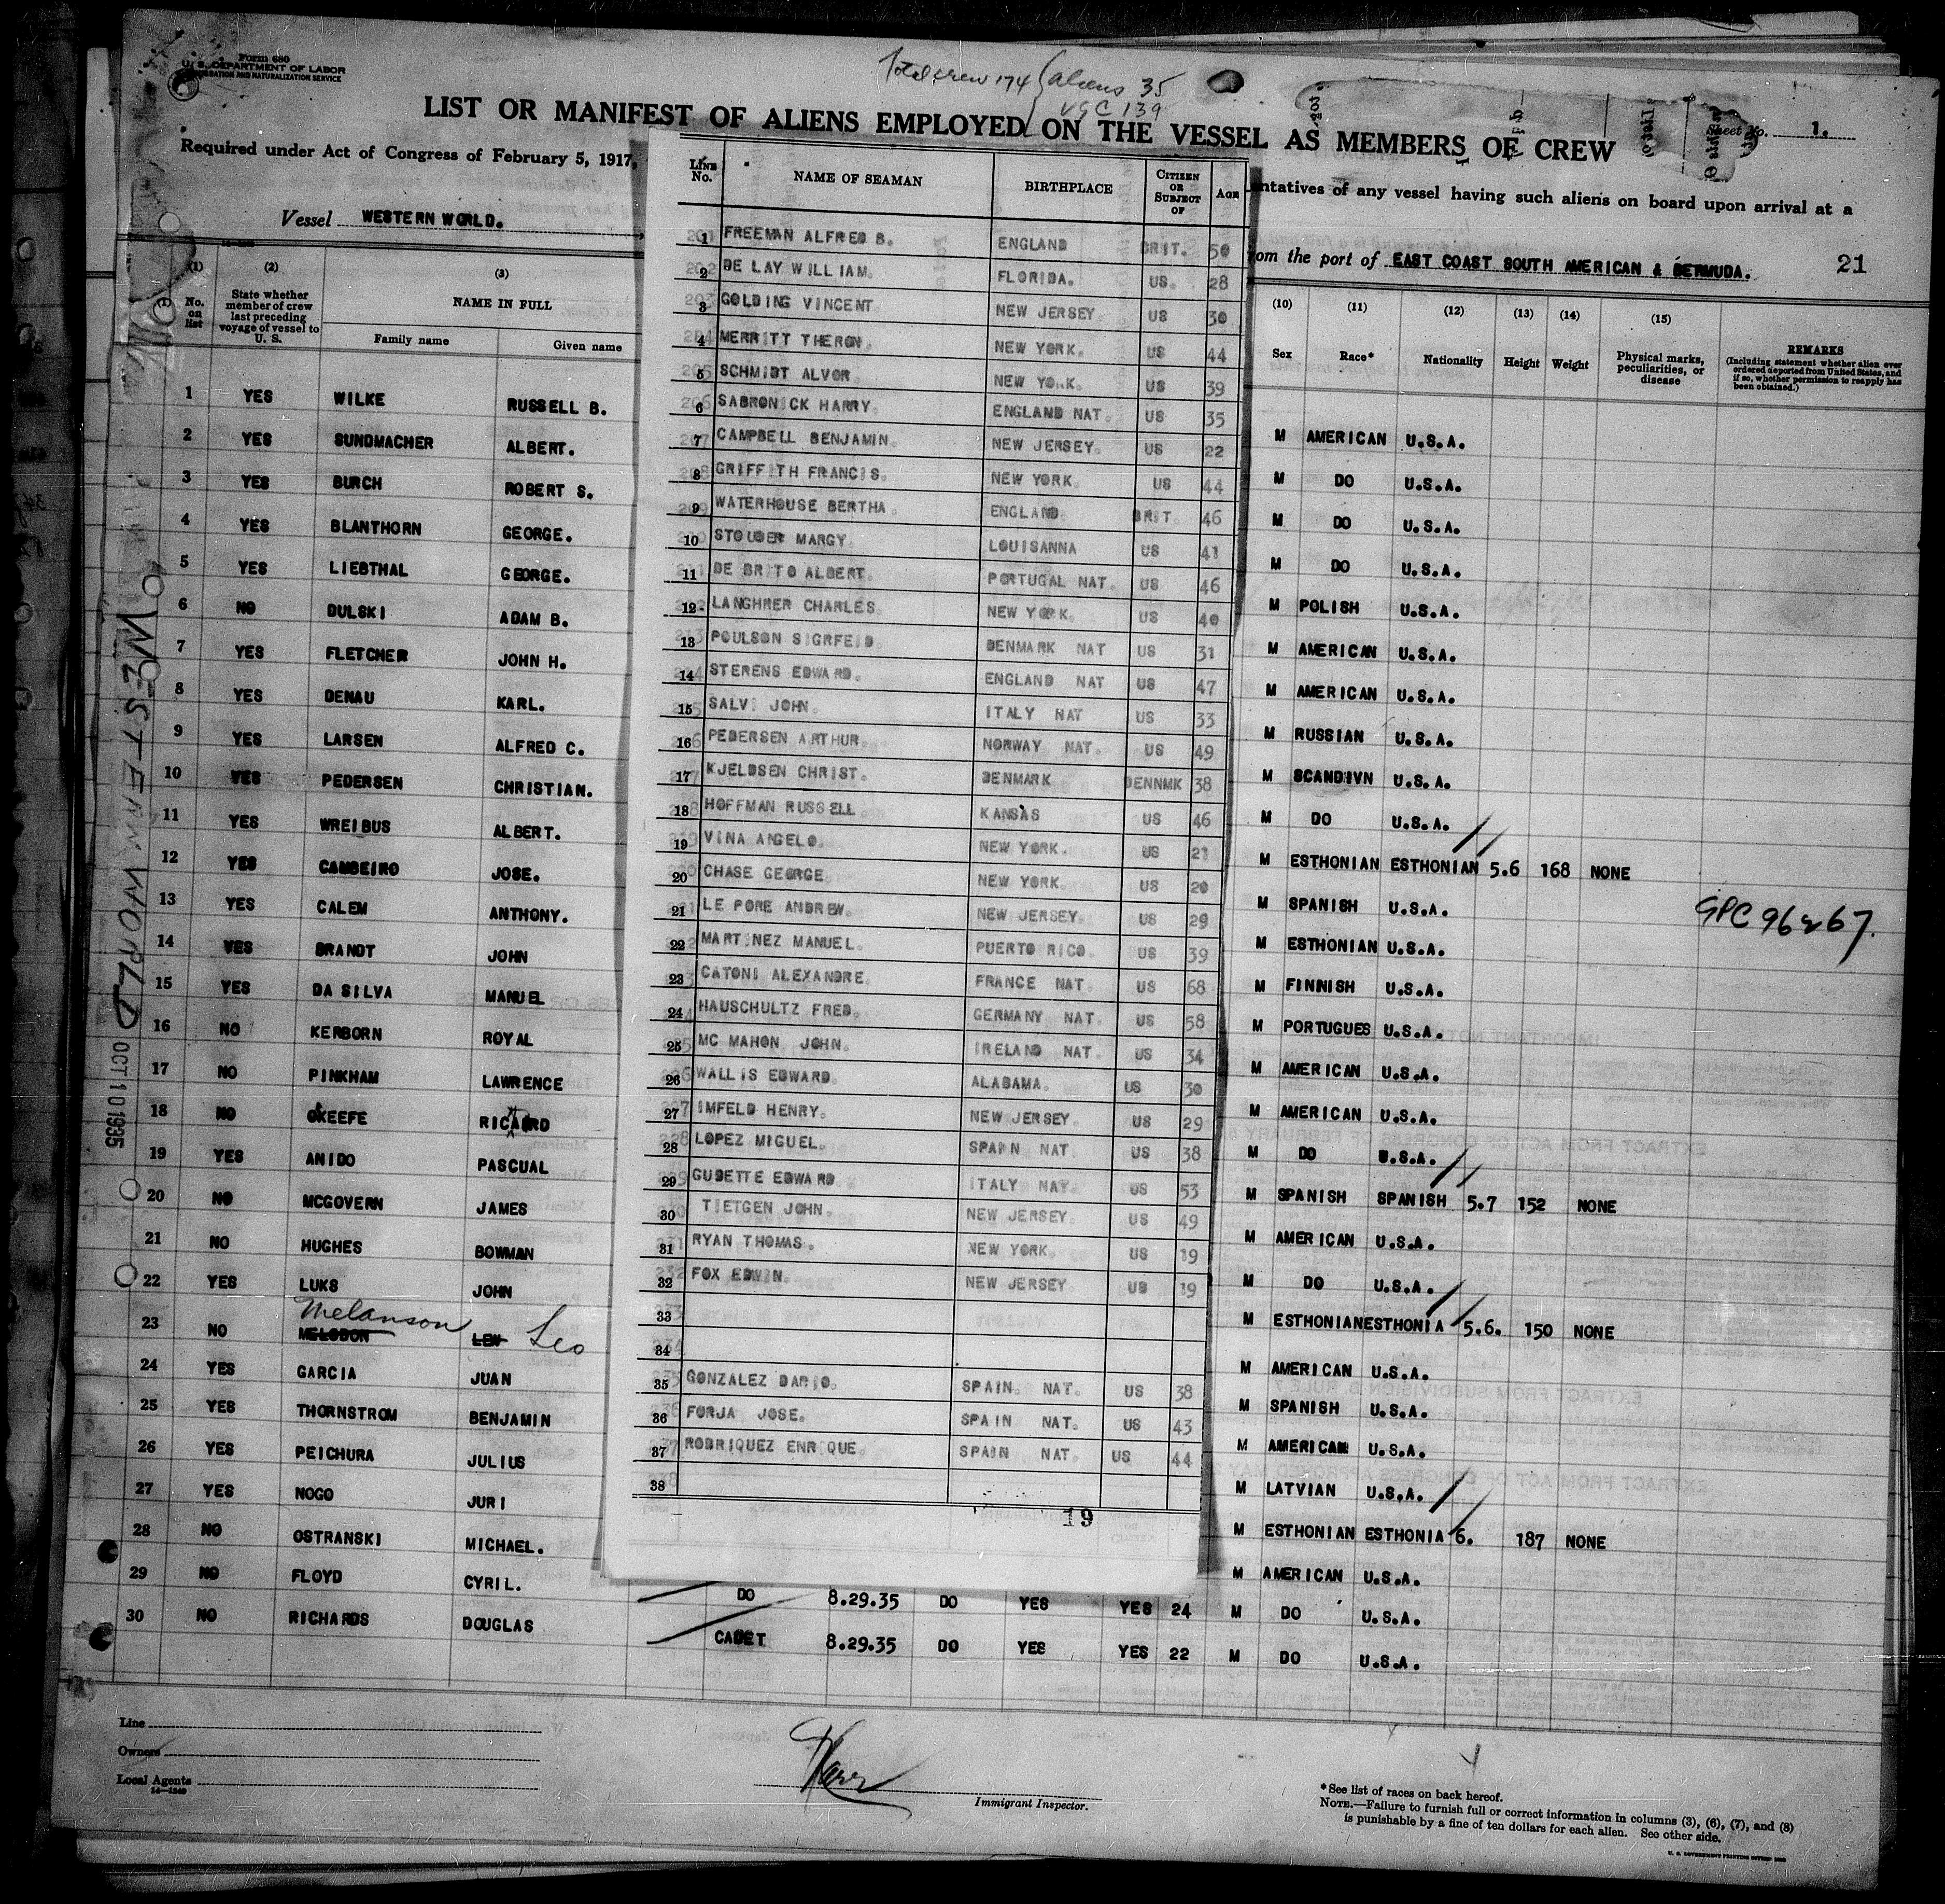 Form 680
U. S. DEPARTMENT OF LABOR
IMMIGRATION AND NATURALIZATION SERVICE
Total crew 174 { aliens 35
USC 139
LIST OR MANIFEST OF ALIENS EMPLOYED ON THE VESSEL AS MEMBERS OF CREW
Sheet No. 1.
Required under Act of Congress of February 5, 1917,
ntatives of any vessel having such aliens on board upon arrival at a
Vessel WESTERN WORLD.
om the port of EAST COAST SOUTH AMERICAN & BERMUDA. 21
(1) (2) (3)
No. on list
State whether member of crew last preceding voyage of vessel to U. S.
NAME IN FULL
Family name Given name
1 YES WILKE RUSSELL B.
2 YES SUNDMACHER ALBERT.
3 YES BURCH ROBERT S.
4 YES BLANTHORN GEORGE.
5 YES LIEBTHAL GEORGE.
6 NO DULSKI ADAM B.
7 YES FLETCHER JOHN H.
8 YES DENAU KARL.
9 YES LARSEN ALFRED C.
10 YES PEDERSEN CHRISTIAN.
11 YES WREIBUS ALBERT.
12 YES CAMBEIRO JOSE.
13 YES CALEM ANTHONY.
14 YES BRANDT JOHN
15 YES DA SILVA MANUEL
16 NO KERBORN ROYAL
17 NO PINKHAM LAWRENCE
18 NO OKEEFE RICARD
19 YES ANIDO PASCUAL
20 NO MCGOVERN JAMES
21 NO HUGHES BOWMAN
22 YES LUKS JOHN
Melanson
23 NO MELODON LEN Leo
24 YES GARCIA JUAN
25 YES THORNSTROM BENJAMIN
26 YES PEICHURA JULIUS
27 YES NOGO JURI
28 NO OSTRANSKI MICHAEL.
29 NO FLOYD CYRIL.
30 NO RICHARDS DOUGLAS
WESTERN WORLD
OCT 10 1935
LINE No. NAME OF SEAMAN BIRTHPLACE CITIZEN OR SUBJECT OF AGE
1 FREEMAN ALFRED B. ENGLAND BRIT. 50
2 DE LAY WILLIAM. FLORIDA. US. 28
3 GOLDING VINCENT. NEW JERSEY. US 30
4 MERRITT THERON. NEW YORK. US 44
5 SCHMIDT ALVOR. NEW YORK. US 39
6 SABRONICK HARRY. ENGLAND NAT. US 35
7 CAMPBELL BENJAMIN. NEW JERSEY. US 22
8 GRIFFITH FRANCIS. NEW YORK. US 44
9 WATERHOUSE BERTHA. ENGLAND. BRIT. 46
10 STOUBER MARGY. LOUISANNA US 41
11 DE BRITO ALBERT. PORTUGAL NAT. US 46
12 LANGHRER CHARLES. NEW YORK. US 40
13 POULSON SIGRFEID DENMARK NAT US 31
14 STERENS EDWARD. ENGLAND NAT US 47
15 SALVI JOHN. ITALY NAT US 33
16 PEDERSEN ARTHUR. NORWAY NAT. US 49
17 KJELDSEN CHRIST. DENMARK DENNMK 38
18 HOFFMAN RUSSELL KANSAS US 46
19 VINA ANGELO. NEW YORK. US 21
20 CHASE GEORGE. NEW YORK. US 20
21 LE PORE ANDREW. NEW JERSEY. US 29
22 MARTINEZ MANUEL. PUERTO RICO. US 39
23 CATONI ALEXANDRE. FRANCE NAT. US 68
24 HAUSCHULTZ FRED. GERMANY NAT. US 58
25 MC MAHON JOHN. IRELAND NAT. US 34
26 WALLIS EDWARD. ALABAMA. US 30
27 IMFELD HENRY. NEW JERSEY. US 29
28 LOPEZ MIGUEL. SPAIN NAT. US 38
29 GUDETTE EDWARD. ITALY NAT. US 53
30 TIETGEN JOHN. NEW JERSEY. US 49
31 RYAN THOMAS. NEW YORK. US 19
32 FOX EDWIN. NEW JERSEY. US 19
33
34
35 GONZALEZ DARIO. SPAIN. NAT. US 38
36 FORJA JOSE. SPAIN NAT. US 43
37 RODRIQUEZ ENRIQUE. SPAIN NAT. US 44
38
19
DO 8.29.35 DO YES YES 24
CADET 8.29.35 DO YES YES 22
(10) (11) (12) (13) (14) (15)
Sex Race* Nationality Height Weight Physical marks, peculiarities, or disease
REMARKS
(Including statement whether alien ever ordered deported from United States, and if so, whether permission to reapply has been obtained.)
M AMERICAN U.S.A.
M DO U.S.A.
M DO U.S.A.
M DO U.S.A.
M POLISH U.S.A.
M AMERICAN U.S.A.
M AMERICAN U.S.A.
M RUSSIAN U.S.A.
M SCANDIVN U.S.A.
M DO U.S.A.
M ESTHONIAN ESTHONIAN 5.6 168 NONE
M SPANISH U.S.A.
M ESTHONIAN U.S.A.
M FINNISH U.S.A.
M PORTUGUES U.S.A.
M AMERICAN U.S.A.
M AMERICAN U.S.A.
M DO U.S.A.
M SPANISH SPANISH 5.7 152 NONE
M AMERICAN U.S.A.
M DO U.S.A.
M ESTHONIAN ESTHONIA 5.6. 150 NONE
M AMERICAN U.S.A.
M SPANISH U.S.A.
M AMERICAN U.S.A.
M LATVIAN U.S.A.
M ESTHONIAN ESTHONIA 6. 187 NONE
M AMERICAN U.S.A.
M DO U.S.A.
M DO U.S.A.
Line
Owners
Local Agents
14—1240
Immigrant Inspector.
*See list of races on back hereof.
NOTE.—Failure to furnish full or correct information in columns (3), (6), (7), and (8)
is punishable by a fine of ten dollars for each alien. See other side.